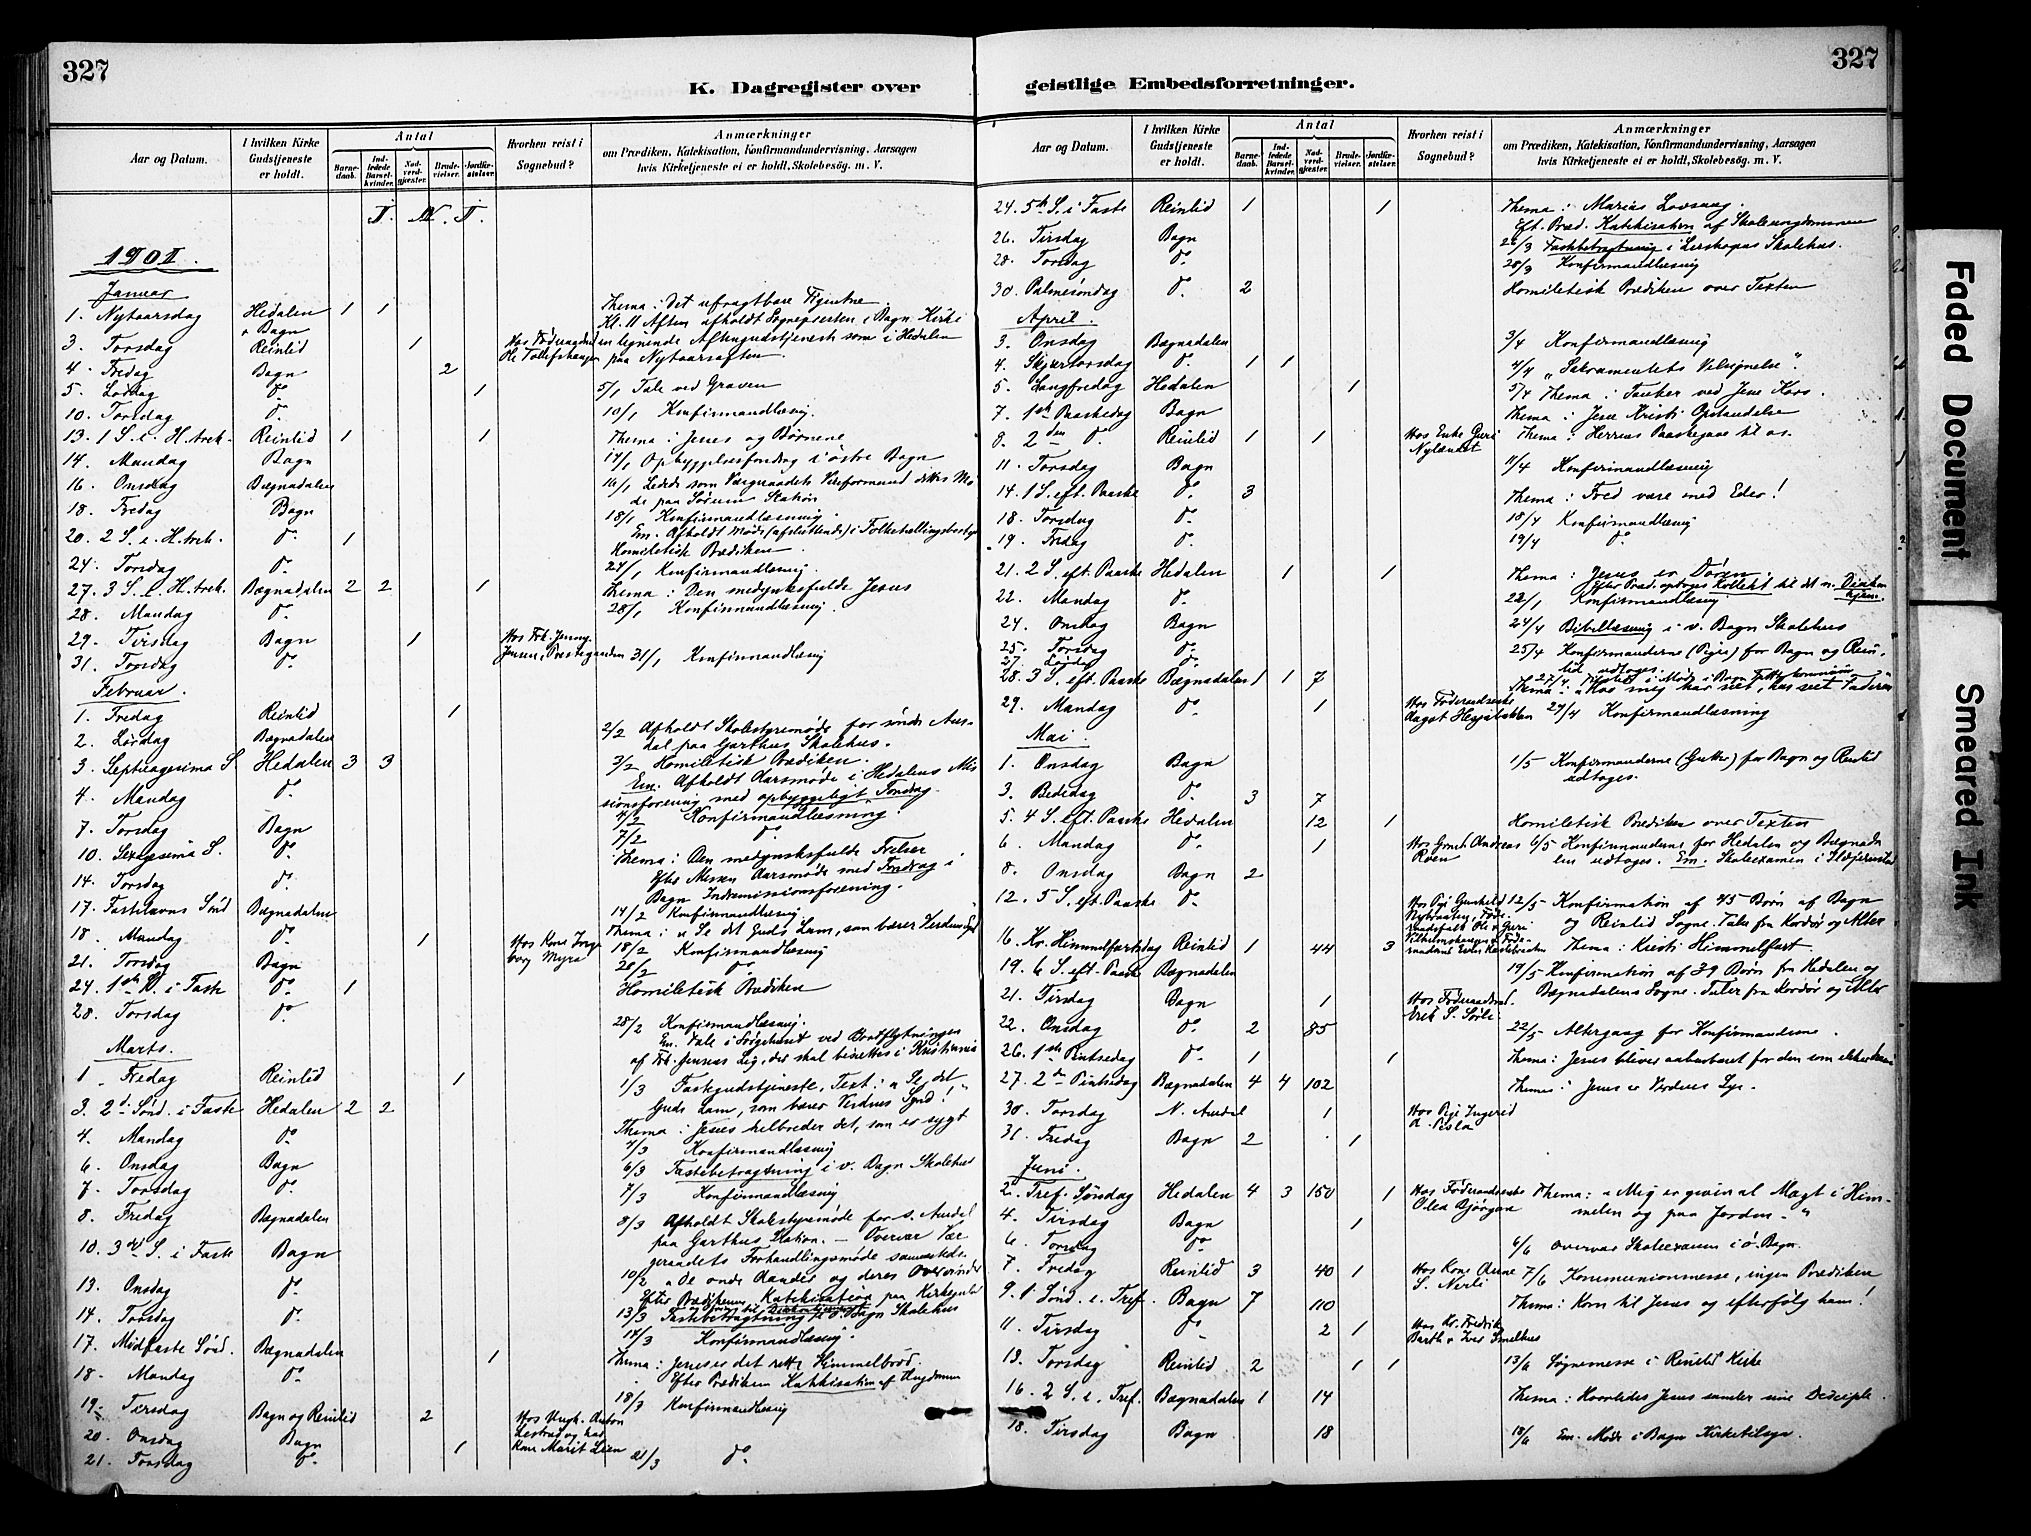 327
K. Dagregister over
Aar og Datum.
I hvilken Kirke Gudstjeneste er holdt.
Antal
Barnedaab.
Indledede Barselkvinder.
Nadverdgjester.
Brudevielser.
Jordfæstelser.
Hvorhen reist i Sognebud?
Anmærkninger
om Prædiken, Katekisation, Konfirmandundervisning, Aarsagen
hvis Kirketjeneste ei er holdt, Skolebesøg. m. V.
I. N. I.
1901.
Januar
1. Nytaarsdag Hedalen 1 1 Thema: Det
+ Bagn Kl. 11 Aften afholdt Sognepresten i Bagn Kirke
3. Torsdag Reinlid 1 en lignende Aftengudstjeneste som i Hedalen
4. Fredag Bagn 2 paa Nytaarsaften.
5. Lørdag do. 1 5/1 Tale ved Graven
10. Torsdag do. 10/1 Konfirmandlæsnig.
13. 1 S. e. H. trek. Reinlid 1 1 Thema: Jesus og Børnene
14. Mandag Bagn 14/1 Opbyggelsesforedrag i østre Bagn
16. Onsdag Bægnadalen 16/1 Ledede som Værgeraadets Viceformand dettes Mø-
de paa Sørum Station
18. Fredag Bagn 18/1 Konfirmandlæsnig.
Em. Afholdt Møde (afsluttende) i Folketællingsbestyr
20. 2 S. e. H. trek. do. 1 Homiletisk Prædiken.
24. Torsdag do. 24/1 Konfirmandlæsnig.
27. 3 S. e. H. trek. Bægnadalen 2 2 1 Thema: Den medynksfulde Jesus
28. Mandag do. 28/1 Konfirmandlæsnig.
29. Tirsdag Bagn 1 Hos Frk. Jenny
Jensen, Prestegaarden
31. Torsdag do. 31/1 Konfirmandlæsnig
Februar.
1. Fredag Reinlid 1
2. Lørdag Bægnadalen 2/2 Afholdt Skolestyremøde for søndre Aur-
dal paa Garthus Skolehus.
3. Septuagesima S. Hedalen 3 3 3/2 Homiletisk Prædiken.
Em. Afholdt Aarsmøde i Hedalens Mis-
sionsforening med opbyggeligt Foredrag.
4. Mandag do. 4/2 Konfirmandlæsning.
7. Torsdag Bagn 7/2 do.
10. Sexagesima S. do. Thema: Den medynksfulde Frelser
Efter Messen Aarsmøde med Foredrag i
Bagn Indremissionsforening.
14. Torsdag do. 14/2 Konfirmandlæsnig
17. Fastelavns Sønd Bægnadalen Thema: „Se det Guds Lam, som bærer Verdens Synd
18. Mandag do. 1 Hos Kone Inge-
borg Myra 18/2 Konfirmandlæsnig
21. Torsdag Bagn do.
24. 1ste S. i Faste do. 1 Homiletisk Prædiken
28. Torsdag do. 28/2 Konfirmandlæsnig.
Em. Tale i Sørgehuset ved Bortflytningen
af Frk. Jensens Lig, der skal bisættes i Kristiania
Marts.
1. Fredag Reinlid 1 1/3 Fastegudstjeneste, Text: „Se det
Guds Lam, som bærer Verdens Synd!“
3. 2d. Sønd. i Faste Hedalen 2 2 Thema: Jesus helbreder det, som er sygt
4. Mandag do. 4/3 Konfirmandlæsnig
6. Onsdag Bagn 6/3 Fastebetragtning i v. Bagn Skolehus
7. Torsdag do. 7/3 Konfirmandlæsnig
8. Fredag Bægnadalen 8/3 Afholdt Skolestyremøde for s. Aurdal
paa Garthus Station. – Overvar Vær-
geraadets Forhandlingsmøde sammesteds.
10. 3die S. i Faste Bagn 10/2 „De onde Aander og deres Overvinder
Efter Prædikenen Katekisation paa Kirkegulv
13. Onsdag do. 13/3 Fastebetragtning i ø. Bagn Skolehus
14. Torsdag do. 14/3 Konfirmandlæsnig.
17. Midfaste Sønd. Bægnadalen 1 Thema: Jesus er det rette Himmelbrød.
Efter Prædiken Katekisation af Ungdommen
18. Mandag do. 18/3 Konfirmandlæsnig
19. Tirsdag Bagn og Reinlid 2 Hos Ungk. Anton
Lestrud og hos
Kone Marit Lien
20. Onsdag Bagn
21. Torsdag do. 1 21/3 do.
327
geistlige Embedsforretninger.
Aar og Datum.
I hvilken Kirke Gudstjeneste er holdt.
Antal
Barnedaab.
Indledede Barselkvinder.
Nadverdgjester.
Brudevielser.
Jordfæstelser.
Hvorhen reist i Sognebud?
Anmærkninger
om Prædiken, Katekisation, Konfirmandundervisning, Aarsagen
hvis Kirketjeneste ei er holdt, Skolebesøg. m. V.
24. 5te S. i Faste Reinlid 1 1 Thema: Marias Lovsang.
Eft. Præd. Katekisation af Skoleungdommen
26. Tirsdag Bagn 26/3 Fastebetragtning i Skolehus.
28. Torsdag do. 28/3 Konfirmandlæsnig
30. Palmesøndag do. 2 Homiletisk Prædiken over Texten
April.
3. Onsdag Bægnadalen 3/4 Konfirmandlæsnig
4. Skjærtorsdag do. 1 1 4/4 „Sakramentets Velsignelse“.
5. Langfredag Hedalen 1 5/4 Thema: Tanker ved Jesu Kors.
7. 1ste Paaskedag Bagn Thema: Jesu Kristi Opstandelse
8. 2den do. Reinlid 1 1 Hos Enke Guri Thema: Herrens Paaskegave til os.
11. Torsdag Bagn 11/4 Konfirmandlæsnig
14. 1 S. eft. Paaske do. 3 Thema: Fred være med Eder!
18. Torsdag do. 18/4 Konfirmandlæsnig
19. Fredag do. 19/4 do.
21. 2 S. eft. Paaske Hedalen 1 1 Thema: Jesus er Døren.
Efter Præd. optoges Kollekt til det n. Diakon
hjem.
22. Mandag do. 22/1 Konfirmandlæsnig
24. Onsdag Bagn 24/4 Bibellæsnig i v. Bagn Skolehus
25. Torsdag do. 25/4 Konfirmanderne (Piger) for Bagn og Rein-
lid udtoges.
27. Lørdag do. 27/4 i Møde i Bagn
28. 3 S. eft. Paaske Bægnadalen 1 1 7 Thema: „Hos mig har set, har set Faderen“
29. Mandag do. 1 Hos Føderaadsenke
Aagot 29/4 Konfirmandlæsning
Mai.
1. Onsdag Bagn 1/5 Konfirmanderne (Gutter) for Bagn og Reinlid
udtoges.
3. Bededag do. 3 7
5. 4 S. eft. Paaske Hedalen 12 1 Homiletisk Prædiken over Texten
6. Mandag do. 1 Hos Grmd. Andreas
Roen 6/5 Konfirmanderne for Hedalen og Bægnada-
len udtoges. Em. Skoleexamen i
8. Onsdag Bagn 2
12. 5 S. eft. Paaske do. Hos Pige Gunhild 12/5 Konfirmation af 45 Børn af Bagn
og Reinlid Sogne. Tale fra Kordør og Alter
16. Kr. Himmelfartsdag Reinlid 1 44 3 Thema: Kristi Himmelfart
19. 6 S. eft. Paaske Bægnadalen 19/5 Konfirmation af 39 Børn fra Hedalen og
Bægnadalens Sogne. Taler fra Kordør og Alter
21. Tirsdag Bagn 1 Hos Føderaadsmd.
22. Onsdag do. 2 85 22/5 Altergang for Konfirmanderne.
26. 1ste Pintsedag do. 1 1 Thema: Jesus bliver aabenbaret for den som elsker ham
27. 2den Pintsedag Bægnadalen 4 4 102 Thema: Jesus er Verdens Lys.
30. Torsdag N. Aurdal 1 Hos Pige Ingerid
31. Fredag Bagn 2 1
Juni.
2. Tref. Søndag Hedalen 4 3 150 1 Hos Føderaadsenke
Olea Bjørgen Thema: „Mig er given al Magt i Him-
melen og paa Jorden.“
4. Tirsdag Bagn 1
6. Torsdag do. 6/6 Overvar Skoleexamen i ø. Bagn.
7. Fredag Reinlid 3 40 1 Hos Kone Anne
S. Nerli 7/6 Kommunionsmesse, ingen Prædiken
9. 1 Sønd. e. Tref. Bagn 7 110 Thema: Kom til Jesus og efterfølg ham!
11. Tirsdag do. 2 1 Hos Kr. Fredrik
Barth + Iver Smelhus
13. Torsdag Reinlid 2 1 1 13/6 Søgnemesse i Reinlid Kirke
16. 2 S. e. Tref. Bægnadalen 1 14 Thema: Hvorledes Jesus samler sine Disciple.
18. Tirsdag Bagn 18 18/6 Em. Møde i Bagn Kirketilsyn.
Faded Document
Smeared Ink